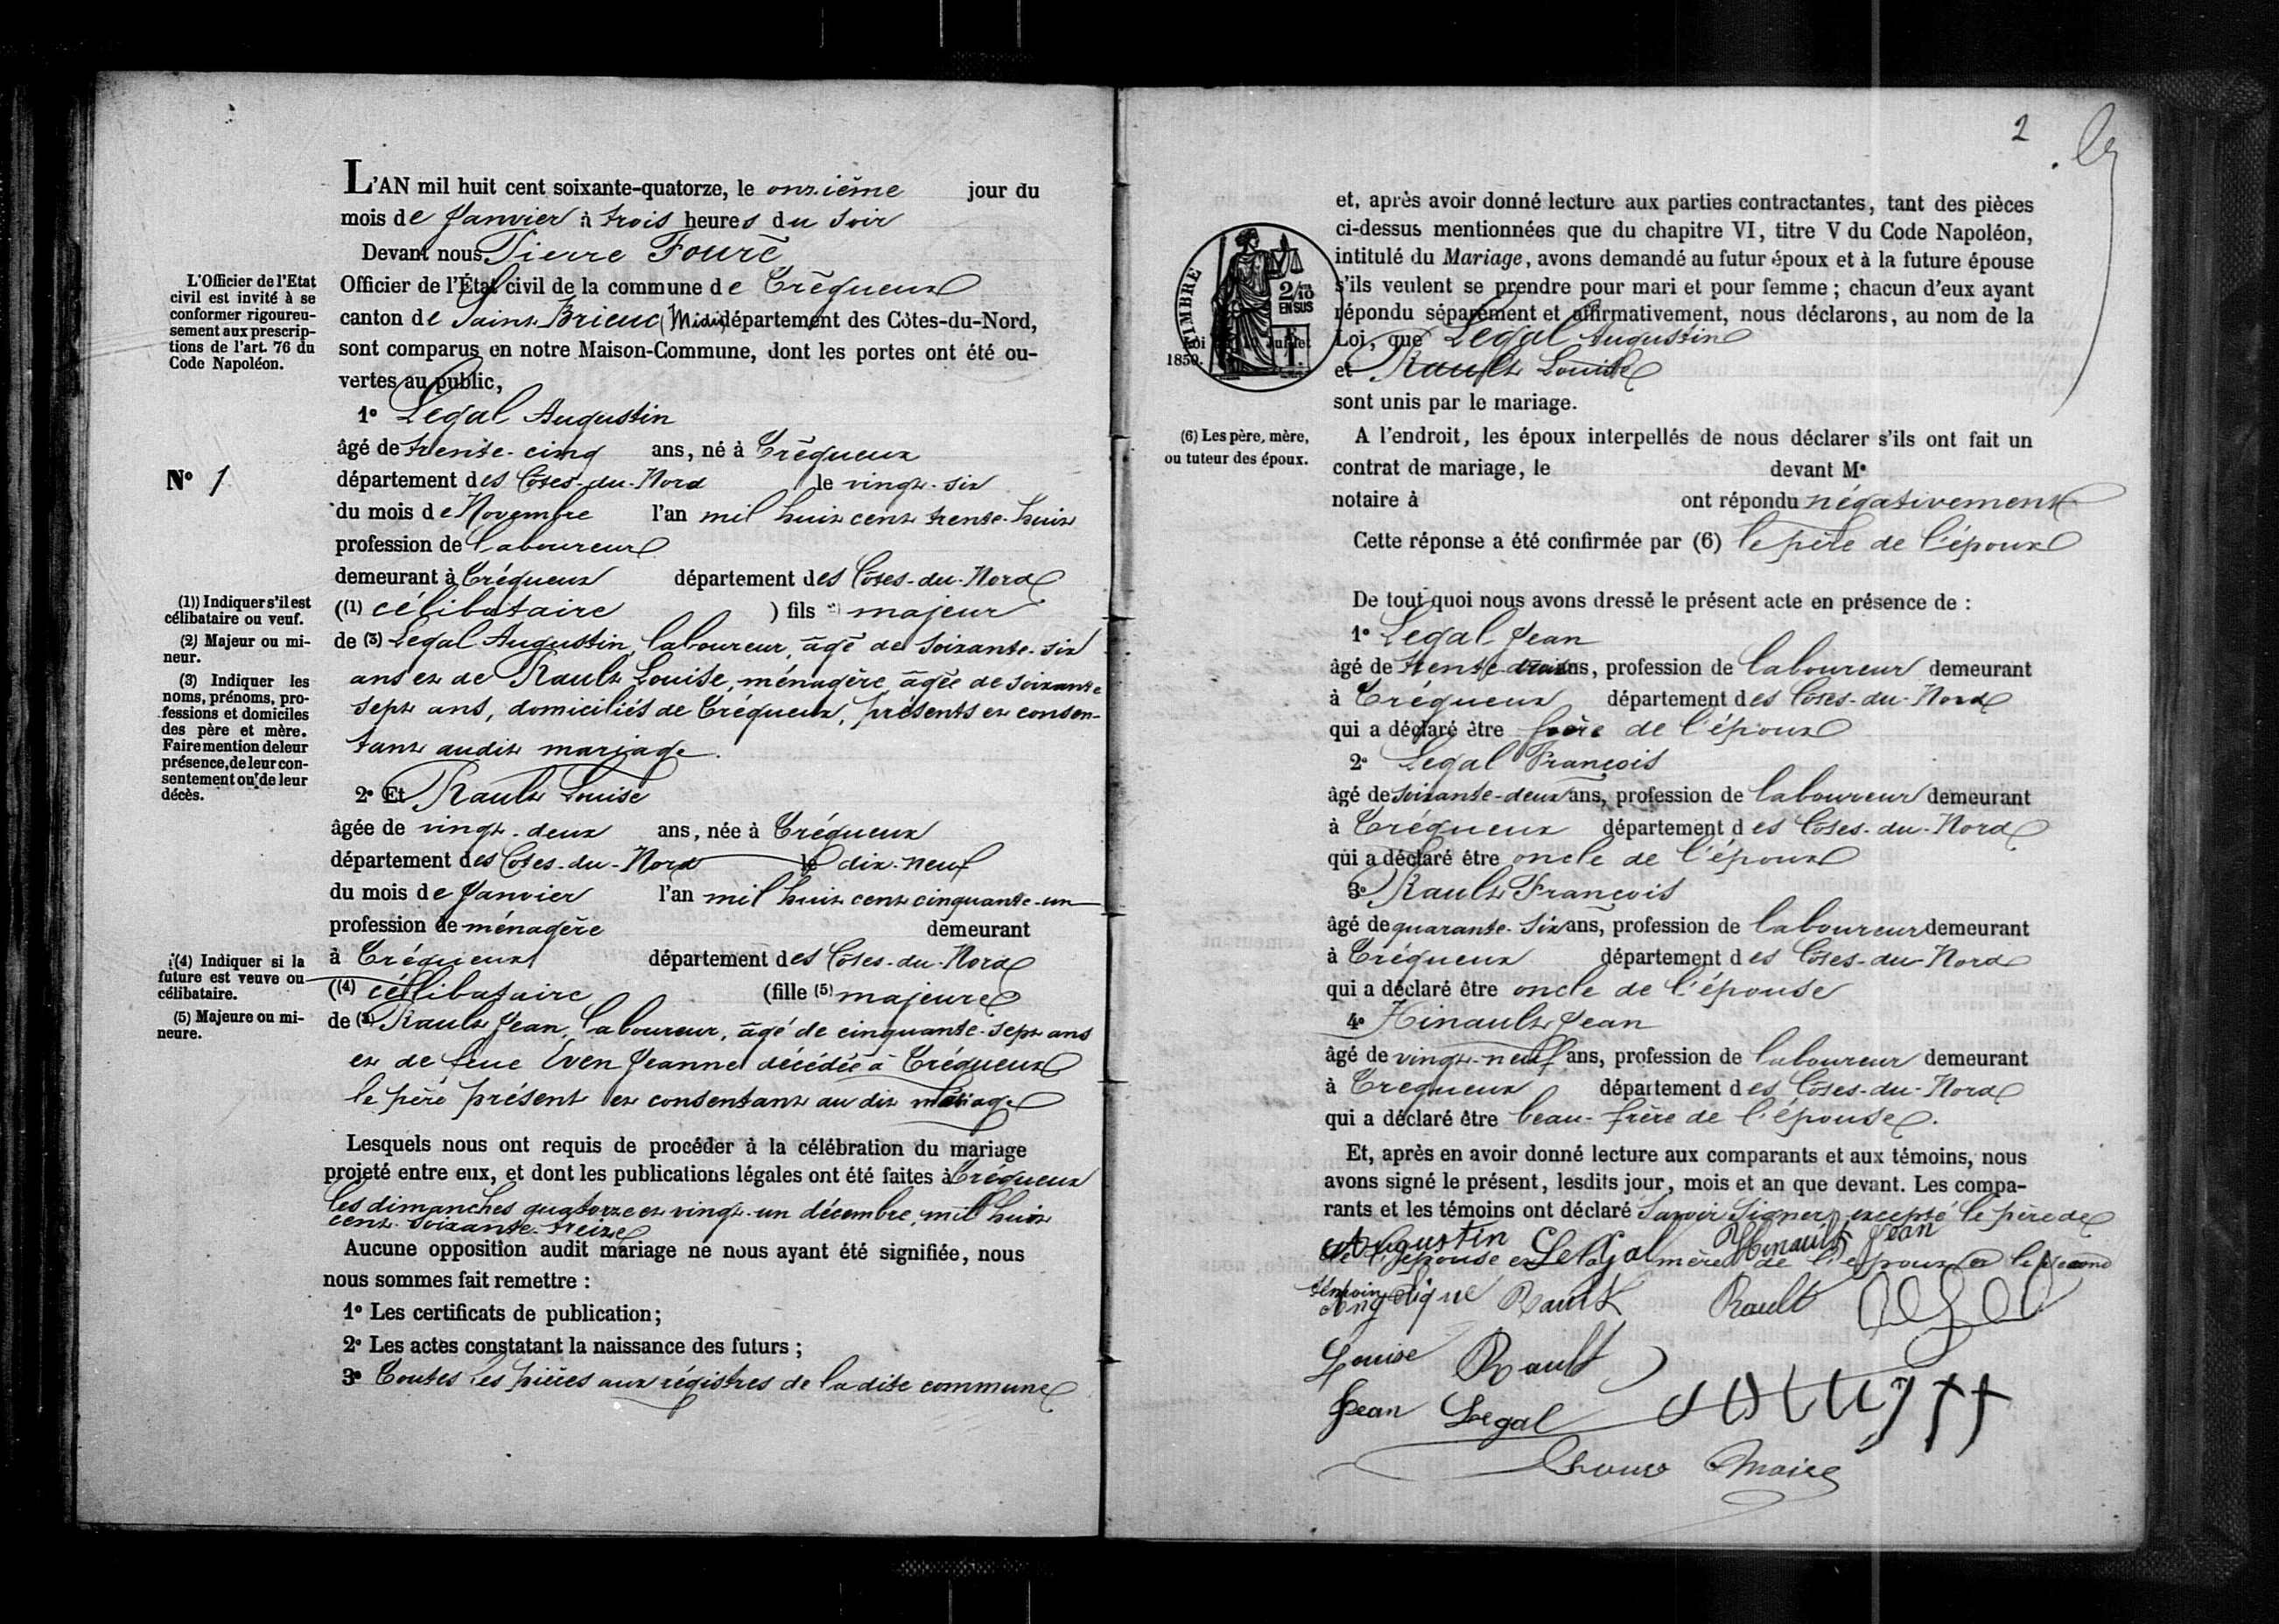 L'AN mil huit cent soixante-quatorze, le onzième jour du
mois de Janvier à trois heures du soir
Devant nous Pierre Fouré
Officier de l'État civil de la commune de Trégueux
canton de Saint-Brieuc (Midi) département des Côtes-du-Nord,
sont comparus en notre Maison-Commune, dont les portes ont été ou-
vertes au public,
L'Officier de l'Etat
civil est invité à se
conformer rigoureu-
sement aux prescrip-
tions de l'art. 76 du
Code Napoléon.
1º Legal Augustin
âgé de trente-cinq ans, né à Trégueux
Nº 1
département des Côtes-du-Nord le vingt-six
du mois de Novembre l'an mil huit cent trente-huit
profession de laboureur
demeurant à Trégueux département des Côtes-du-Nord
((1) célibataire ) fils majeur
(1)) Indiquer s'il est
célibataire ou veuf.
(2) Majeur ou mi-
neur.
(3) Indiquer les
noms, prénoms, pro-
fessions et domiciles
des père et mère.
Faire mention de leur
présence, de leur con-
sentement ou de leur
décès.
de (3) Legal Augustin, laboureur, âgé de soixante-six
ans et de Rault Louise, ménagère âgée de soixante
sept ans, domiciliés de Trégueux, présents et consen-
tant audit mariage.
2º Et Rault Louise
âgée de vingt-deux ans, née à Trégueux
département des Côtes-du-Nord le dix-neuf
du mois de Janvier l'an mil huit cent cinquante-un
profession de ménagère demeurant
à Trégueux département des Côtes-du-Nord
((4) célibataire (fille (5) majeure
(4) Indiquer si la
future est veuve ou
célibataire.
(5) Majeure ou mi-
neure.
de (3) Rault Jean, laboureur, âgé de cinquante-sept ans
et de feue Even Jeanne décédée à Trégueux
le père présent et consentant au dit mariage
Lesquels nous ont requis de procéder à la célébration du mariage
projeté entre eux, et dont les publications légales ont été faites à Trégueux
les dimanches quatorze et vingt-un décembre, mil huit
cent soixante-treize
Aucune opposition audit mariage ne nous ayant été signifiée, nous
nous sommes fait remettre :
1º Les certificats de publication;
2º Les actes constatant la naissance des futurs ;
3º Toutes les pièces aux régistres de la dite commune
2
et, après avoir donné lecture aux parties contractantes, tant des pièces
ci-dessus mentionnées que du chapitre VI, titre V du Code Napoléon,
intitulé du Mariage, avons demandé au futur époux et à la future épouse
s'ils veulent se prendre pour mari et pour femme ; chacun d'eux ayant
répondu séparément et affirmativement, nous déclarons, au nom de la
Loi, que Legal Augustin
et Rault Louise
sont unis par le mariage.
TIMBRE
2/10
EN SUS
1850.
(6) Les père, mère,
ou tuteur des époux.
A l'endroit, les époux interpellés de nous déclarer s'ils ont fait un
contrat de mariage, le devant Me
notaire à ont répondu négativement
Cette réponse a été confirmée par (6) le père de l'époux
De tout quoi nous avons dressé le présent acte en présence de :
1º Legal Jean
âgé de trente ans, profession de laboureur demeurant
à Trégueux département des Côtes-du-Nord
qui a déclaré être frère de l'époux
2º Legal François
âgé de soixante-deux ans, profession de laboureur demeurant
à Trégueux département des Côtes-du-Nord
qui a déclaré être oncle de l'époux
3º Rault François
âgé de quarante-six ans, profession de laboureur demeurant
à Trégueux département des Côtes-du-Nord
qui a déclaré être oncle de l'épouse
4º Hinault Jean
âgé de vingt-neuf ans, profession de laboureur demeurant
à Tregueux département des Côtes-du-Nord
qui a déclaré être beau-frère de l'épouse.
Et, après en avoir donné lecture aux comparants et aux témoins, nous
avons signé le présent, lesdits jour, mois et an que devant. Les compa-
rants et les témoins ont déclaré savoir signer excepté le père de
de l'épouse et la mère de l'époux et le second
témoin
Augustin LeGal Hinault Jean
Angélique Rault Rault
Louise Rault
Jean Legal
Fouré Maire